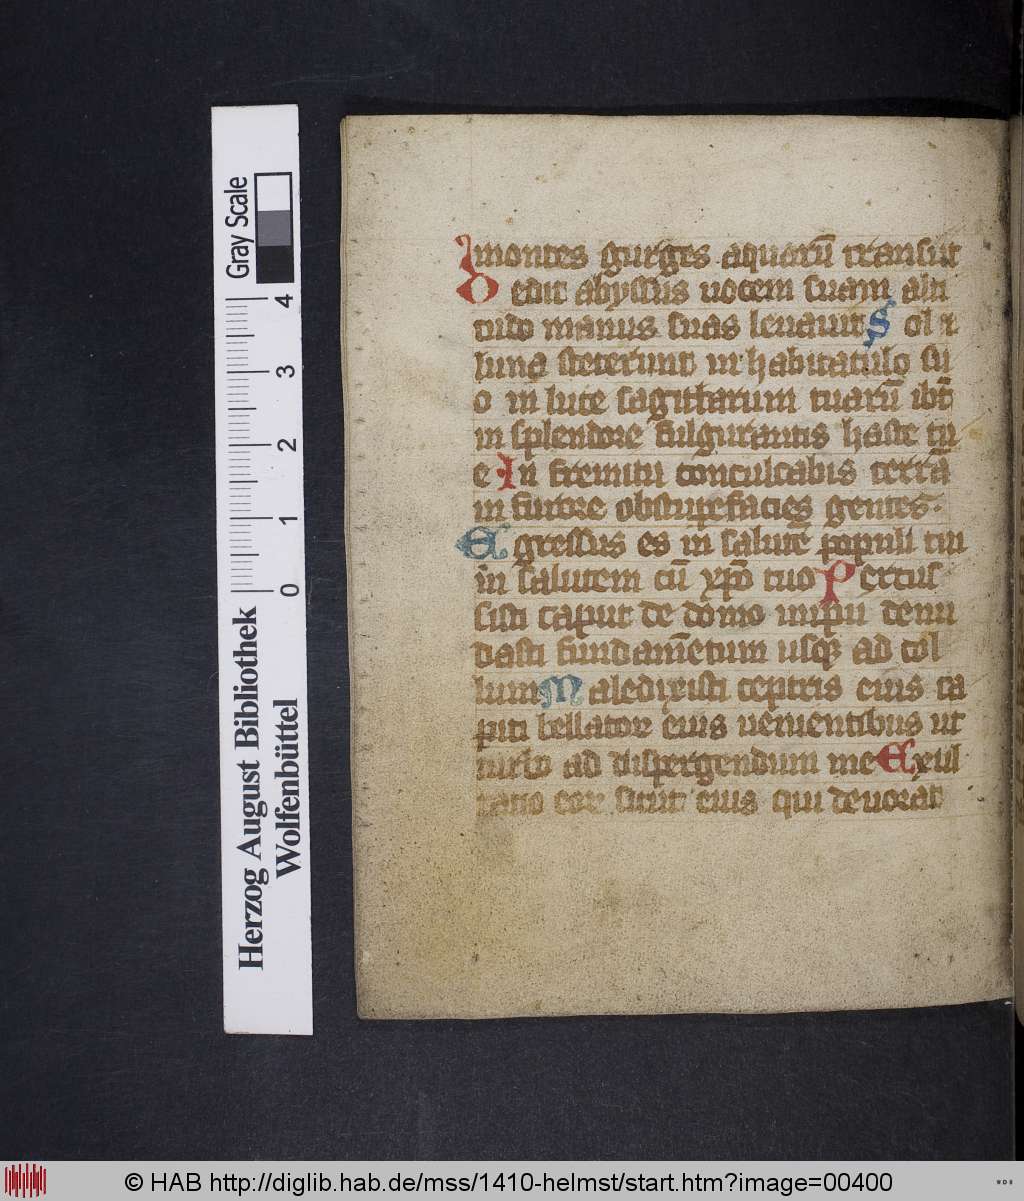 montes gurges aquarū transiit
D edit abyssus uocem suam alti
tudo manus suas leuauit S ol ⁊
luna steterunt in habitaculo su
o in luce sagittarum tuarū ibūt
in splendore fulgurantis haste tu
e In fremitu conculcabis terrā
in furore obstupefacies gentes.
E gressus es in salutē populi tui
in salutem cū xp̄o tuo P ercus
sisti caput de domo impii denu
dasti fundam̄etum usq; ad col
lum M aledixisti ceptris eius ca
piti bellator eius uenientibus ut
turbo ad dispergendum me E xul
tatio eor sicut eius qui deuorat
Gray Scale
4
3
2
1
0
Herzog August Bibliothek
Wolfenbüttel
© HAB http://diglib.hab.de/mss/1410-helmst/start.htm?image=00400